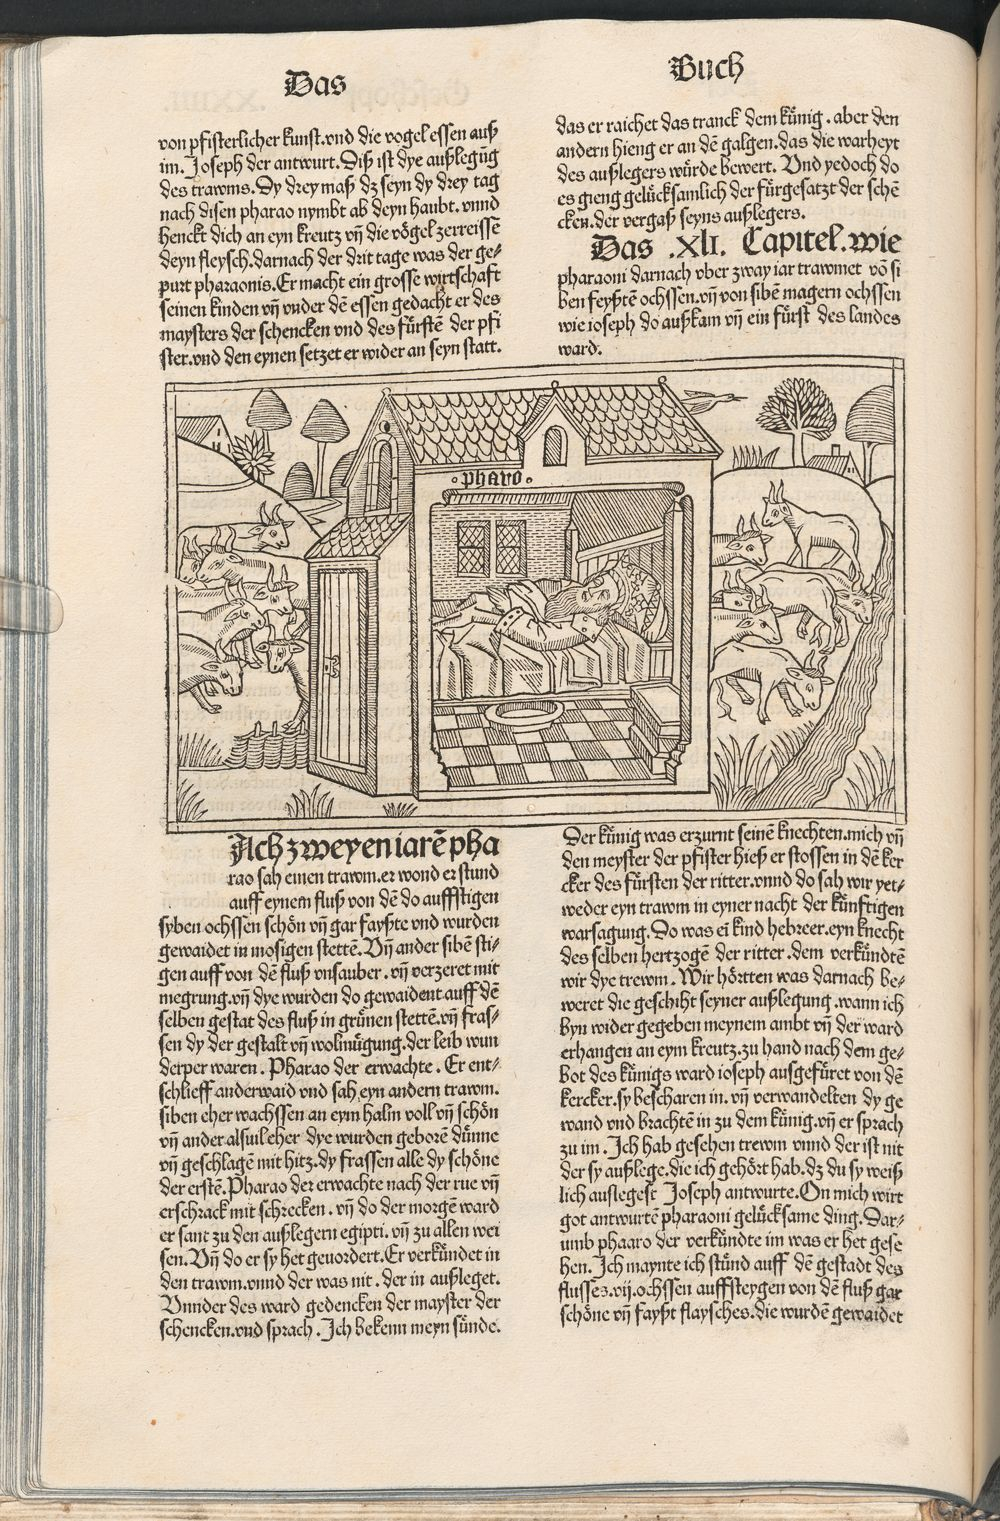 Das
Buch
von pfisterlicher kunst.vnd die vogel essen auß
im. Joseph der antwurt. Diß ist dye außlegūg
des trawms. Dy drey maß dz seyn dy drey tag
nach disen pharao nymbt ab deyn haubt. vnnd
henckt dich an eyn kreutz vn̄ die vögel zerreissē
deyn fleysch. darnach der drit tage was der ge⸗
purt pharaonis. Er macht ein grosse wirtschaft
seinen kinden vn̄ vnder dē essen gedacht er des
maysters der schencken vnd des fürstē der pfi
ster. vnd den eynen setzet er wider an seyn statt.
das er raichet das tranck dem künig. aber den
andern hieng er an dē galgen. das die warheyt
des außlegers würde bewert. Vnd yedoch do
es gieng gelücksamlich der fürgesatzt der schē
cken. der vergaß seyns außlegers.
Das .XLI. Capitel. wie
pharaoni darnach vber zway iar trawmet vō si
ben feyßtē ochssen. vn̄ von sibē magern ochssen
wie ioseph do außkam vn̄ ein fürst des landes
ward.
. pharo .
Nach zweyen iarē pha
rao sah einen trawm. er wond er stund
auff eynem fluß von dē do auffstigen
syben ochssen schön vn̄ gar fayßte vnd wurden
gewaidet in mosigen stettē. Vn̄ ander sibē sti⸗
gen auff von dē fluß vnsauber. vn̄ verzeret mit
megrung. vn̄ dye wurden do gewaident auff dē
selben gestat des fluß in grünen stettē. vn̄ fras⸗
sen dy der gestalt vn̄ wolmügung. der leib wun
derper waren. Pharao der erwachte. Er ent⸗
schlieff anderwaid vnd sah eyn andern trawm.
siben eher wachssen an eym halm voll vn̄ schön
vn̄ ander alsuil eher dye wurden geborē dünne
vn̄ geschlagē mit hitz. dy frassen alle dy schöne
der erstē. Pharao der erwachte nach der rue vn̄
erschrack mit schrecken. vn̄ do der morgē ward
er sant zu den außlegern egipti. vn̄ zu allen wei
sen. Vn̄ do er sy het geuordert. Er verkündet in
den trawm. vnnd der was nit. der in außleget.
Vnnder des ward gedencken der mayster der
schencken. vnd sprach. Ich bekenn meyn sünde.
Der künig was erzurnt seinē knechten. mich vn̄
den meyster der pfister hieß er stossen in dē ker
cker des fürsten der ritter. vnnd do sah wir yet⸗
weder eyn trawm in eyner nacht der künftigen
warsagung. Do was eī kind hebreer. eyn knecht
des selben hertzogē der ritter. dem verkündtē
wir dye trewm. Wir hörtten was darnach be⸗
weret die geschiht seyner außlegung. wann ich
byn wider gegeben meynem ambt vn̄ der ward
erhangen an eym kreutz. zu hand nach dem ge⸗
bot des künigs ward ioseph ausgefüret von dē
kercker. sy bescharen in. vn̄ verwandelten dy ge
wand vnd brachtē in zu dem künig. vn̄ er sprach
zu im. Ich hab gesehen trewm vnnd der ist nit
der sy außlege. die ich gehört hab. dz du sy weiß
lich auslegest Joseph antwurte. On mich wirt
got antwurtē pharaoni gelücksame ding. Dar⸗
umb phaaro der verkündte im was er het gese
hen. Ich maynte ich stünd auff dē gestadt des
flusses. vij. ochssen auffsteygen von dē fluß gar
schöne vn̄ fayßt flaysches. die wurdē gewaidet